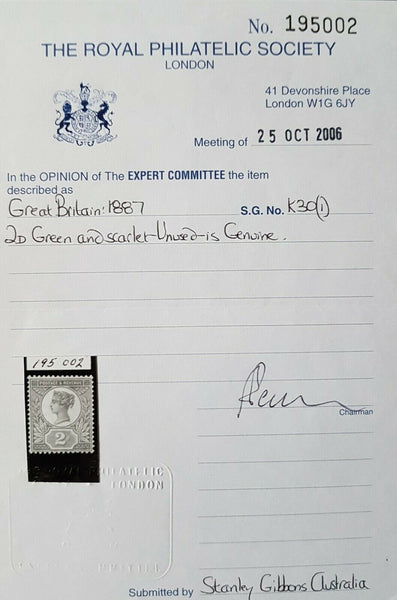 No. 195002
THE ROYAL PHILATELIC SOCIETY
LONDON
41 Devonshire Place
London W1G 6JY
Meeting of 25 OCT 2006
In the OPINION of The EXPERT COMMITTEE the item
described as
Great Britain: 1887 S.G. No. K30(1)
2D Green and scarlet-Unused-is Genuine.
195 002
POSTAGE & REVENUE
2D
Chairman
PHILATELIC
LONDON
Submitted by Stanley Gibbons Australia